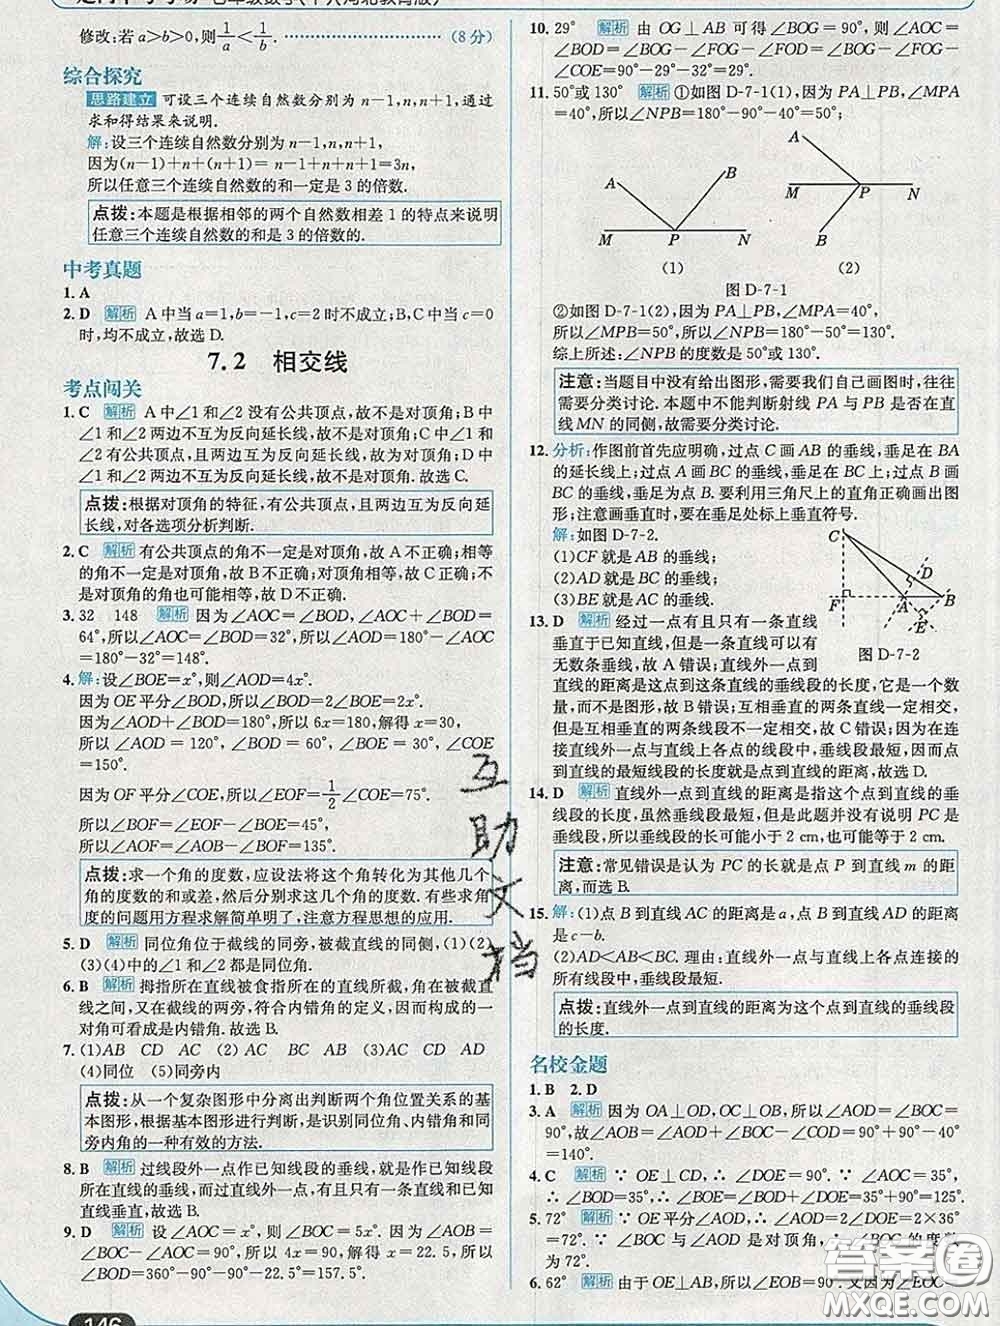 修改:若a>b>0,则1/a<1/b. (8分)
综合探究
思路建立 可设三个连续自然数分别为n-1,n,n+1,通过
求和得结果来说明.
解:设三个连续自然数分别为n-1,n,n+1,
因为(n-1)+n+(n+1)=n-1+n+n+1=3n,
所以任意三个连续自然数的和一定是3的倍数.
点拨:本题是根据相邻的两个自然数相差1的特点来说明
任意三个连续自然数的和是3的倍数的.
中考真题
1. A
2. D 解析 A中当a=1,b=-1,c=2时不成立;B,C中当c=0
时,均不成立,故选D.
7.2 相交线
考点闯关
1. C 解析 A中∠1和∠2没有公共顶点,故不是对顶角;B中
∠1和∠2两边不互为反向延长线,故不是对顶角;C中∠1和
∠2有公共顶点,且两边互为反向延长线,故为对顶角;D中
∠1和∠2两边不互为反向延长线,故不是对顶角.故选C.
点拨:根据对顶角的特征,有公共顶点,且两边互为反向延
长线,对各选项分析判断.
2. C 解析 有公共顶点的角不一定是对顶角,故A不正确;相等
的角不一定是对顶角,故B不正确;对顶角相等,故C正确;不
是对顶角的角也可能相等,故D不正确.
3. 32 148 解析 因为∠AOC=∠BOD,∠AOC+∠BOD=
64°,所以∠AOC=∠BOD=32°,所以∠AOD=180°-∠AOC
=180°-32°=148°.
4. 解:设∠BOE=x°,则∠AOD=4x°.
因为OE平分∠BOD,所以∠BOD=2∠BOE=2x°.
因为∠AOD+∠BOD=180°,所以6x=180,解得x=30,
所以∠AOD=120°,∠BOD=60°,∠BOE=30°,∠COE
=150°.
因为OF平分∠COE,所以∠EOF=1/2∠COE=75°.
所以∠BOF=∠EOF-∠BOE=45°,
所以∠AOF=∠AOB-∠BOF=135°.
点拨:求一个角的度数,应设法将这个角转化为其他几个
角的度数的和或差,然后分别求这几个角的度数.有些求角
度的问题用方程求解简单明了,注意方程思想的应用.
5. D 解析 同位角位于截线的同旁,被截直线的同侧,(1)(2)
(3)(4)中的∠1和∠2都是同位角.
6. B 解析 拇指所在直线被食指所在的直线所截,角在被截直
线之间,又在截线的两旁,符合内错角的概念,因而构成的一
对角可看成是内错角.故选B.
7. (1)AB CD AC (2)AC BC AB (3)AB CD AC
(4)同位 (5)同旁内
点拨:从一个复杂图形中分离出判断两个角位置关系的基
本图形,根据基本图形进行判断,是识别同位角、内错角和同
旁内角的一种有效的方法.
8. B 解析 过线段外一点作已知线段的垂线,就是作已知线段
所在直线的垂线,而过直线外一点,有且只有一条直线和已知
直线垂直,故选B.
9. D 解析 设∠AOC=x°,则∠BOC=5x°.因为∠AOB=
∠BOC-∠AOC=90°,所以4x=90,解得x=22.5,所以
∠BOD=360°-90°-90°-22.5°=157.5°.
146
10. 29° 解析 由OG⊥AB可得∠BOG=90°,则∠AOC=
∠BOD=∠BOG-∠FOG-∠FOD=∠BOG-∠FOG-
∠COE=90°-29°-32°=29°.
11. 50°或130° 解析 ①如图D-7-1(1),因为PA⊥PB,∠MPA
=40°,所以∠NPB=180°-90°-40°=50°;
A
B
M P N
(1)
A
M P N
B
(2)
图D-7-1
②如图D-7-1(2),因为PA⊥PB,∠MPA=40°,
所以∠MPB=50°,所以∠NPB=180°-50°=130°.
综上所述:∠NPB的度数是50°或130°.
注意:当题目中没有给出图形,需要我们自己画图时,往往
需要分类讨论.本题中不能判断射线PA与PB是否在直
线MN的同侧,故需要分类讨论.
12. 分析:作图前首先应明确,过点C画AB的垂线,垂足在BA
的延长线上;过点A画BC的垂线,垂足在BC上;过点B画
BC的垂线,垂足为点B.要利用三角尺上的直角正确画出图
形;注意画垂直时,要在垂足处标上垂直符号.
解:如图D-7-2.
(1)CF就是AB的垂线;
(2)AD就是BC的垂线;
(3)BE就是AB的垂线.
C
D
F A B
E
图D-7-2
13. D 解析 经过一点有且只有一条直线
垂直于已知直线,但是一条直线可以有
无数条垂线,故A错误;直线外一点到
直线的距离是这点到这条直线的垂线段的长度,它是一个数
量,而不是线段,故B错误;互相垂直的两条直线一定相交,
但是互相垂直的两条线段不一定相交,故C错误;因为连接
直线外一点与直线上各点的线段中,垂线段最短,因而点到
直线的最短线段的长度就是点到直线的距离,故选D.
14. D 解析 直线外一点到直线的距离是指这个点到直线的垂
线段的长度,虽然垂线段最短,但是此题并没有说明PC是
垂线段,所以垂线段的长可能小于2 cm,也可能等于2 cm.
注意:常见错误是认为PC的长就是点P到直线m的距
离,而选B.
15. 解:(1)点B到直线AC的距离是a,点B到直线AD的距离
是c-b.
(2)AD<AB<BC.理由:直线外一点与直线上各点连接的
所有线段中,垂线段最短.
点拨:直线外一点到直线的距离为这个点到直线的垂线段
的长度.
名校金题
1. B 2. D
3. A 解析 因为OA⊥OD,OC⊥OB,所以∠AOD=∠BOC=
90°,故∠AOB=∠AOD+∠BOC-∠COD=90°+90°-40°
=140°.
4. C 解析 ∵OE⊥CD,∴∠DOE=90°.∵∠AOC=35°,
∴∠BOD=35°,∴∠BOE=∠BOD+∠DOE=35°+90°=125°.
5. 72° 解析 ∵OE平分∠AOD,∴∠AOD=2∠DOE=2×36°
=72°.∵∠BOC与∠AOD是对顶角,∴∠BOC的度数
为72°.
6. 62° 解析 由于OE⊥AB,所以∠EOB=90°.又因为∠EOC=
互
助
文
档
答案圈
MXQE.COM